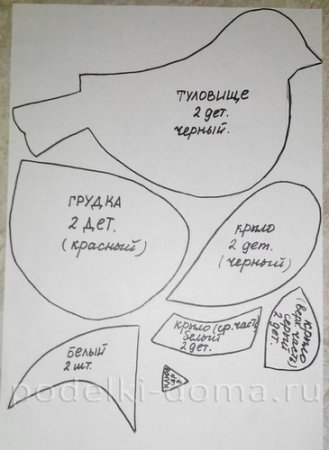 туловище
2 дет.
черный.
ГРУДКА
2 ДЕТ.
(красный)
крыло
2 дет.
(черный)
крыло (ср. часть)
белый
2 дет.
крыло
(верх. часть)
серый
2 дет.
БЕЛЫЙ
2 шт.
podelki-doma.ru